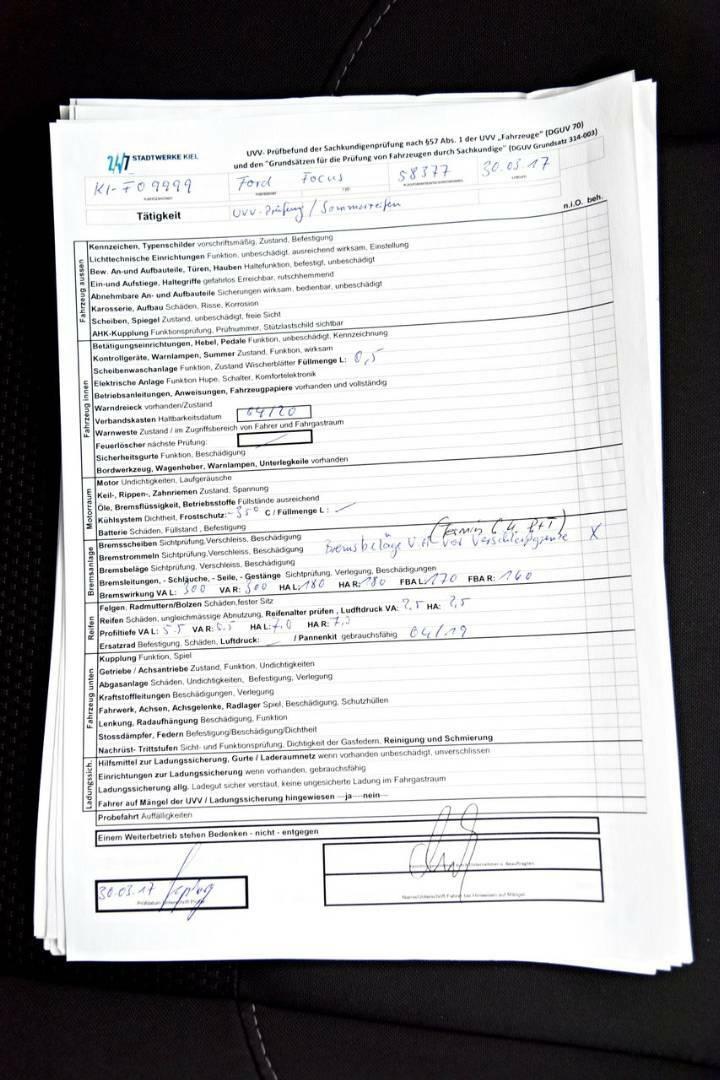 24/7 STADTWERKE KIEL
UVV- Prüfbefund der Sachkundigenprüfung nach §57 Abs. 1 der UVV „Fahrzeuge" (DGUV 70)
und den "Grundsätzen für die Prüfung von Fahrzeugen durch Sachkundige" (DGUV Grundsatz 314-003)
KI-FO9999 Ford Focus 58377 30.03.17
Tätigkeit UVV-Prüfung / Sommerreifen
n.i.O. beh.
Fahrzeug aussen
Kennzeichen, Typenschilder vorschriftsmäßig, Zustand, Befestigung
Lichttechnische Einrichtungen Funktion, unbeschädigt, ausreichend wirksam, Einstellung
Bew. An-und Aufbauteile, Türen, Hauben Haltefunktion, befestigt, unbeschädigt
Ein-und Aufstiege, Haltegriffe gefahrlos Erreichbar, rutschhemmend
Abnehmbare An- und Aufbauteile Sicherungen wirksam, bedienbar, unbeschädigt
Karosserie, Aufbau Schäden, Risse, Korrosion
Scheiben, Spiegel Zustand, unbeschädigt, freie Sicht
AHK-Kupplung Funktionsprüfung, Prüfnummer, Stützlastschild sichtbar
Fahrzeug innen
Betätigungseinrichtungen, Hebel, Pedale Funktion, unbeschädigt, Kennzeichnung
Kontrollgeräte, Warnlampen, Summer Zustand, Funktion, wirksam
Scheibenwaschanlage Funktion, Zustand Wischerblätter Füllmenge L: 0,5
Elektrische Anlage Funktion Hupe, Schalter, Komfortelektronik
Betriebsanleitungen, Anweisungen, Fahrzeugpapiere vorhanden und vollständig
Warndreieck vorhanden/Zustand
Verbandskasten Haltbarkeitsdatum 04/20
Warnweste Zustand / im Zugriffsbereich von Fahrer und Fahrgastraum
Feuerlöscher nächste Prüfung:
Sicherheitsgurte Funktion, Beschädigung
Bordwerkzeug, Wagenheber, Warnlampen, Unterlegkeile vorhanden
Motorraum
Motor Undichtigkeiten, Laufgeräusche
Keil-, Rippen-, Zahnriemen Zustand, Spannung
Öle, Bremsflüssigkeit, Betriebsstoffe Füllstände ausreichend
Kühlsystem Dichtheit, Frostschutz: -35° C / Füllmenge L :
Batterie Schäden, Füllstand , Befestigung
Bremsanlage
Bremsscheiben Sichtprüfung,Verschleiss, Beschädigung
Bremstrommeln Sichtprüfung,Verschleiss, Beschädigung Bremsbeläge vor Verschleißgrenze X
Bremsbeläge Sichtprüfung, Verschleiss, Beschädigung
Bremsleitungen, - Schläuche, - Seile, - Gestänge Sichtprüfung, Verlegung, Beschädigungen
Bremswirkung VA L: 300 VA R: 300 HA L: 180 HA R: 180 FBA L: 170 FBA R: 160
Reifen
Felgen, Radmuttern/Bolzen Schäden,fester Sitz
Reifen Schäden, ungleichmässige Abnutzung, Reifenalter prüfen , Ludftdruck VA: 2,5 HA: 2,5
Profiltiefe VA L: 5.5 VA R: 5.5 HA L: 7,0 HA R: 7,0
Ersatzrad Befestigung, Schäden, Luftdruck: / Pannenkit gebrauchsfähig 04/19
Fahrzeug unten
Kupplung Funktion, Spiel
Getriebe / Achsantriebe Zustand, Funktion, Undichtigkeiten
Abgasanlage Schäden, Undichtigkeiten, Befestigung, Verlegung
Kraftstoffleitungen Beschädigungen, Verlegung
Fahrwerk, Achsen, Achsgelenke, Radlager Spiel, Beschädigung, Schutzhüllen
Lenkung, Radaufhängung Beschädigung, Funktion
Stossdämpfer, Federn Befestigung/Beschädigung/Dichtheit
Nachrüst- Trittstufen Sicht- und Funktionsprüfung, Dichtigkeit der Gasfedern, Reinigung und Schmierung
Ladungssich.
Hilfsmittel zur Ladungssicherung, Gurte / Laderaumnetz wenn vorhanden unbeschädigt, unverschlissen
Einrichtungen zur Ladungssicherung wenn vorhanden, gebrauchsfähig
Ladungssicherung allg. Ladegut sicher verstaut, keine ungesicherte Ladung im Fahrgastraum
Fahrer auf Mängel der UVV / Ladungssicherung hingewiesen ja nein
Probefahrt Auffälligkeiten
Einem Weiterbetrieb stehen Bedenken - nicht - entgegen
30.03.17